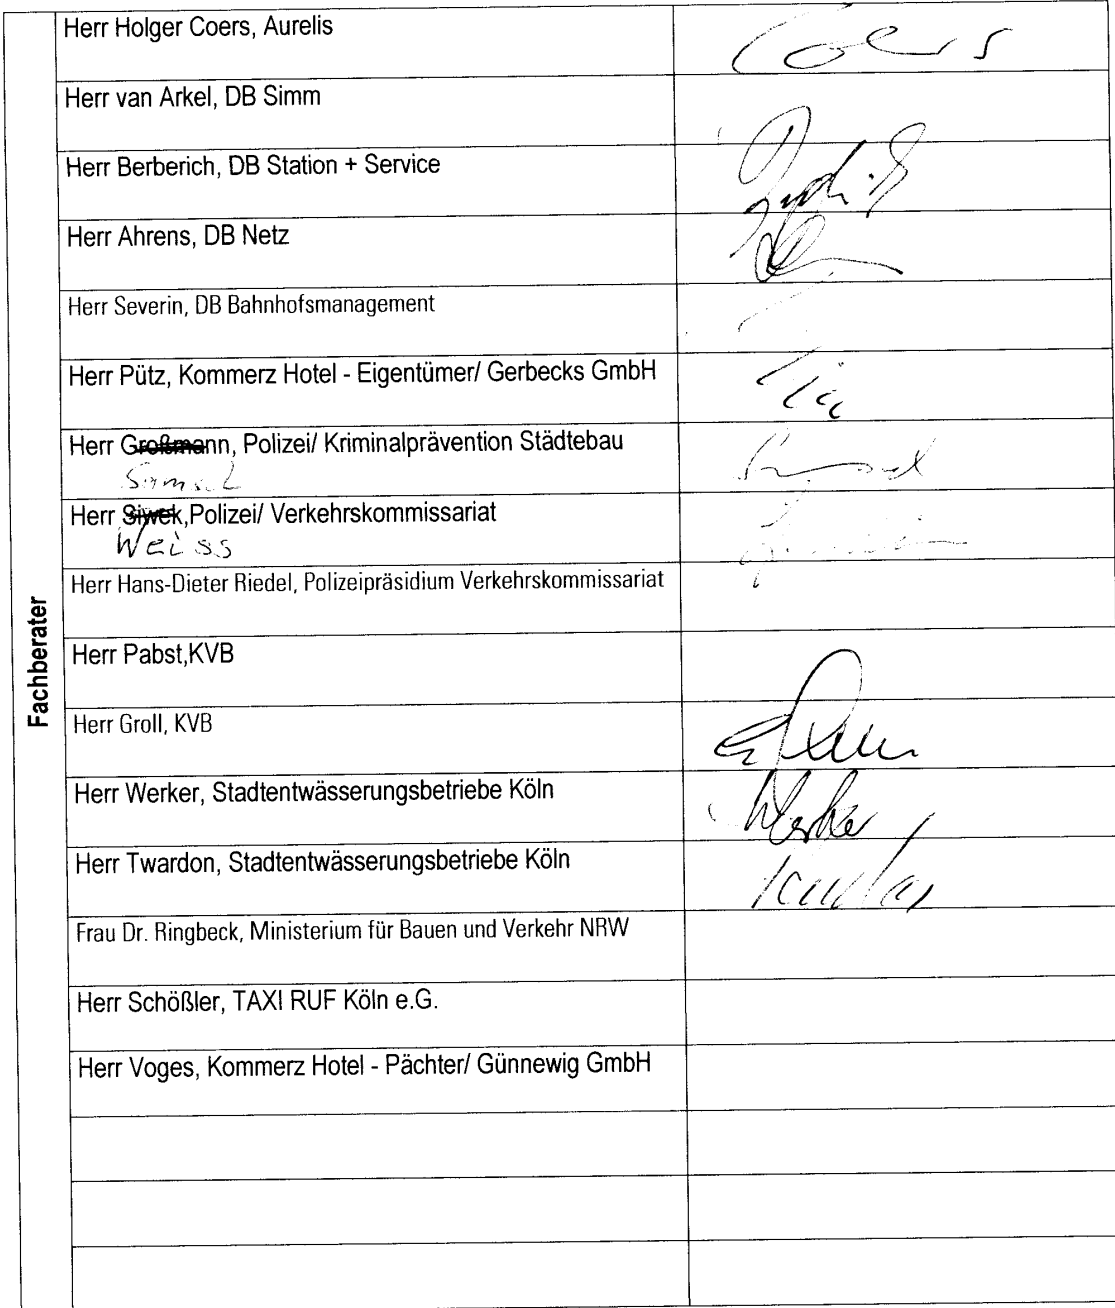 Fachberater
Herr Holger Coers, Aurelis Coers
Herr van Arkel, DB Simm
Herr Berberich, DB Station + Service
Herr Ahrens, DB Netz
Herr Severin, DB Bahnhofsmanagement
Herr Pütz, Kommerz Hotel - Eigentümer/ Gerbecks GmbH
Herr Großmann, Polizei/ Kriminalprävention Städtebau
Herr Siwek,Polizei/ Verkehrskommissariat
Weiss
Herr Hans-Dieter Riedel, Polizeipräsidium Verkehrskommissariat
Herr Pabst,KVB
Herr Groll, KVB
Herr Werker, Stadtentwässerungsbetriebe Köln Werker
Herr Twardon, Stadtentwässerungsbetriebe Köln
Frau Dr. Ringbeck, Ministerium für Bauen und Verkehr NRW
Herr Schößler, TAXI RUF Köln e.G.
Herr Voges, Kommerz Hotel - Pächter/ Günnewig GmbH